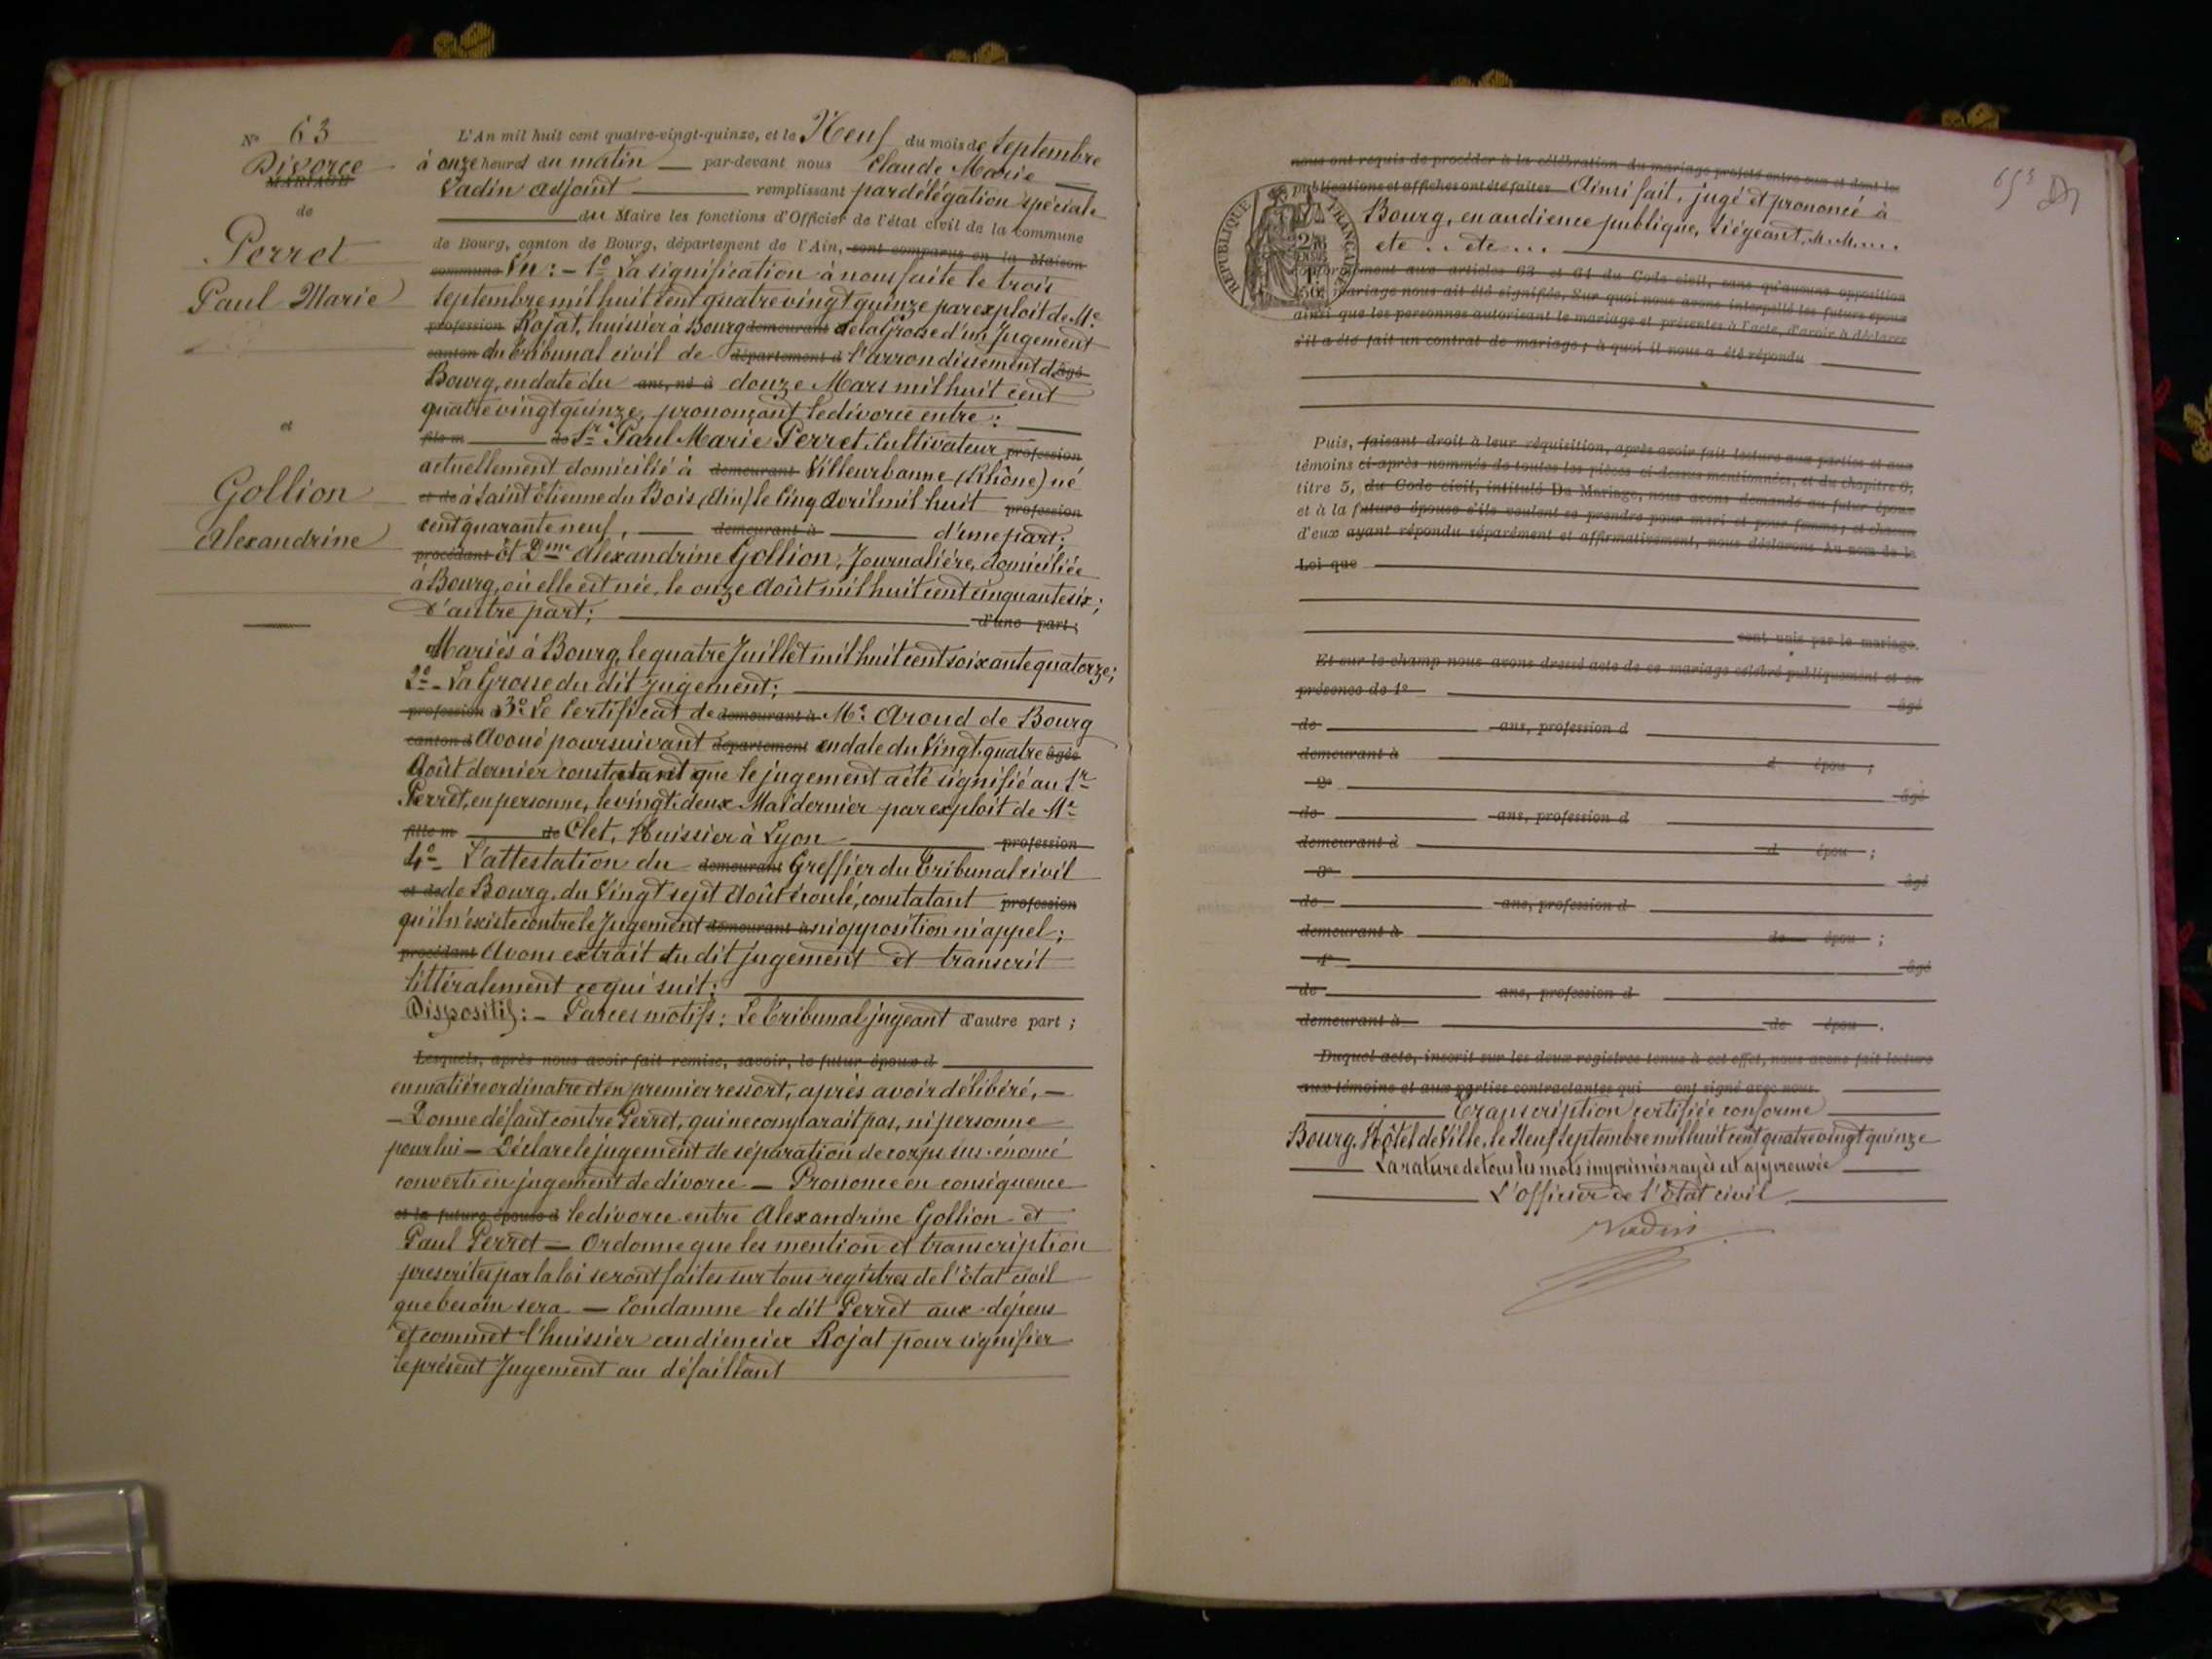 N° 63
Divorce
MARIAGE
de
Perret
Paul Marie
et
Gollion
Alexandrine
L'An mil huit cent quatre-vingt-quinze, et le Neuf du mois de Septembre
à onze heures du matin par-devant nous Claude Marie
Vadin adjoint remplissant par délégation spéciale
du Maire les fonctions d'Officier de l'état civil de la commune
de Bourg, canton de Bourg, département de l'Ain, sont comparus en la Maison
commune Vu : - 1° La signification à nous faite le trois
Septembre mil huit cent quatre vingt quinze par exploit de Me
profession Rojat, huissier à Bourg demeurant de la Grosse d'un Jugement
canton du Tribunal civil de département d l'arrondissement d âgé
Bourg, en date du ans, né à douze Mars mil huit cent
quatre vingt quinze, prononçant le divorce entre :
fils m de Sr Paul Marie Perret, Cultivateur profession
actuellement domicilié à demeurant Villeurbanne (Rhône) né
et de à Saint Etienne du Bois (Ain) le Cinq Avril mil huit profession
cent quarante neuf, demeurant à d'une part;
procédant Et Dme Alexandrine Gollion, Journalière, domiciliée
à Bourg, où elle est née, le onze Août mil huit cent cinquante six;
d'autre part; d'une part;
Mariés à Bourg, le quatre Juillet mil huit cent soixante quatorze;
2° - La Grosse du dit Jugement;
profession d 3° Le Certificat de demeurant à Me Aroud de Bourg
canton d Avoué poursuivant département en date du Vingt-quatre âgée
Août dernier constatant que le jugement a été signifié au Sr
Perret, en personne, le vingt-deux Mai dernier par exploit de Me
fille m de Clet, Huissier à Lyon profession
4° L'attestation du demeurant Greffier du Tribunal civil
et de de Bourg, du Vingt sept Août écoulé, constatant profession
qu'il n'existe contre le Jugement demeurant à ni opposition ni appel;
procédant Avons extrait du dit jugement et transcrit
littéralement ce qui suit:
Dispositif: - Par ces motifs: Le Tribunal jugeant d'autre part;
Lesquels, après nous avoir fait remise, savoir, le futur époux d
en matière ordinaire et en premier ressort, après avoir délibéré, —
- Donne défaut contre Perret, qui ne comparait pas, ni personne
pour lui — Déclare le jugement de séparation de corps sus-énoncé
converti en jugement de divorce — Prononce en conséquence
et la future épouse d le divorce entre Alexandrine Gollion et
Paul Perret — Ordonne que les mention et transcription
prescrites par la loi seront faites sur tous registres de l'Etat civil
que besoin sera — Condamne le dit Perret aux dépens
et commet l'huissier audiencier Rojat pour signifier
le présent Jugement au défaillant
nous ont requis de procéder à la célébration du mariage projeté entre eux et dont les
publications et affiches ont été faites Ainsi fait, jugé et prononcé à
Bourg, en audience publique, Siégeant, M.M....
etc .. etc ...
RÉPUBLIQUE FRANÇAISE
conformément aux articles 63 et 64 du Code civil, sans qu'aucune opposition
mariage nous ait été signifiée. Sur quoi nous avons interpellé les futurs époux
ainsi que les personnes autorisant le mariage et présentes à l'acte, d'avoir à déclarer
s'il a été fait un contrat de mariage; à quoi il nous a été répondu
Puis, faisant droit à leur réquisition, après avoir fait lecture aux parties et aux
témoins ci-après nommés de toutes les pièces ci-dessus mentionnées, et du chapitre 6,
titre 5, du Code civil, intitulé Du Mariage, nous avons demandé au futur époux
et à la future épouse s'ils veulent se prendre pour mari et pour femme; et chacun
d'eux ayant répondu séparément et affirmativement, nous déclarons Au nom de la
Loi que
sont unis par le mariage.
Et sur le champ nous avons dressé acte de ce mariage célébré publiquement et en
présence de 1° âgé
de ans, profession d
demeurant à d épou ;
2° âgé
de ans, profession d
demeurant à d épou ;
3° âgé
de ans, profession d
demeurant à de épou ;
4° âgé
de ans, profession d
demeurant à de épou .
Duquel acte, inscrit sur les deux registres tenus à cet effet, nous avons fait lecture
aux témoins et aux parties contractantes qui ont signé avec nous.
Transcription certifiée conforme
Bourg, Hôtel de Ville, le Neuf Septembre mil huit cent quatre vingt quinze
La rature de tous les mots imprimés rayés est approuvée
L'officier de l'Etat civil
Vadin